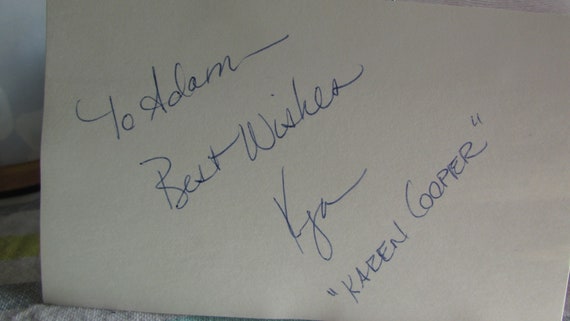 To Adam
Best Wishes
Kyra
"KAREN COOPER"